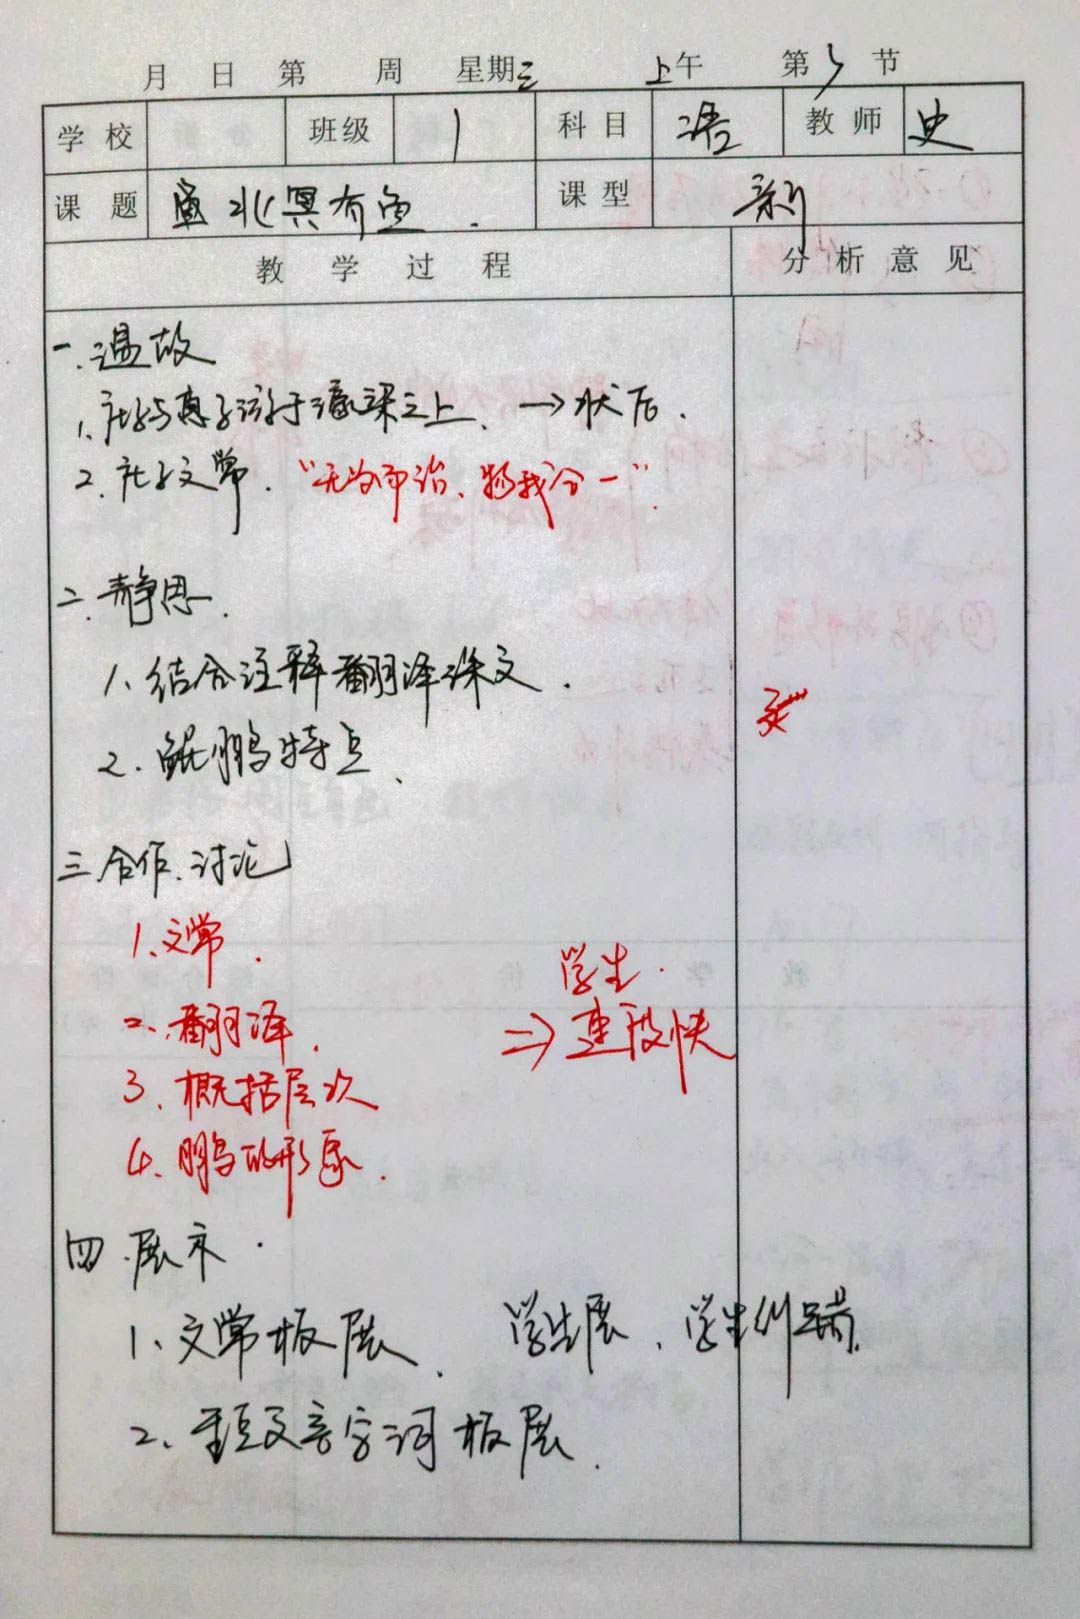 月 日 第 周 星期三 上午 第 节
学校 班级 1 科目 语 教师 史
课题 北冥有鱼. 课型 新
教学过程 分析意见
一.温故
1.庄子与惠子游于濠梁之上. →状后.
2.庄子文常. "无为而治、物我合一".
二.静思.
1.结合注释翻译课文.
2.鲲鹏特点.
三.合作.讨论
1.文常.
2.翻译.
3.概括层次
4.鹏的形象.
学生.
⇒ 速度快
四.展示.
1.文常板展. 学生展、学生纠错.
2.重点文言字词板展.